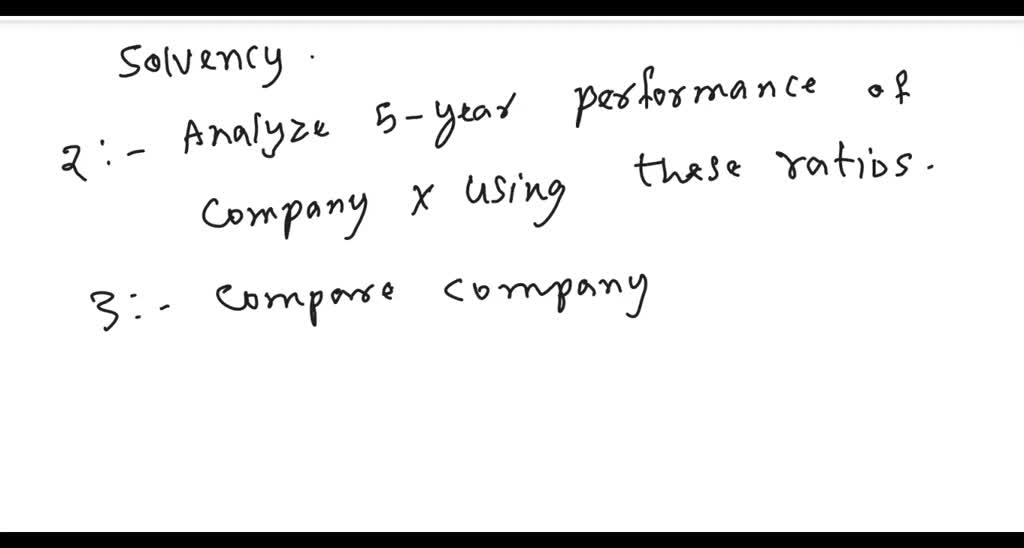 Solvency.
2:- Analyze 5-year performance of
company x using these ratios.
3:- compare company